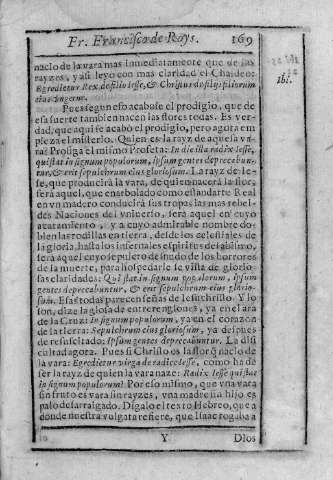 Fr. Francisco de Rays. 169
nacio de la vara mas inmediatamente que de las
rayzes, y asi leyò con mas claridad el Chaldeo:
Egredietur Rex de filijs Iesse, & Christus de filijs filiorum
eius vnguetur.
Pues segun eso acabose el prodigio, que de
esa suerte tambien nacen las flores todas. Es ver-
dad, que aqui se acabò el prodigio, pero agora em-
pieza el misterio. Quien es la rayz de aquella va-
ra? Prosiga el mismo Profeta: In die illa radix Iesse,
qui stat in signum populorum, ipsum gentes deprecabun-
tur, & erit sepulchrum eius gloriosum. La rayz de Ie-
se, que producirà la vara, de quien nacerà la flor,
serà aquel, que enarbolado como estandarte Real
en vn madero conducirà sus tropas las mas rebel-
des Naciones del vniuerso, serà aquel en cuyo
acatamiento, y a cuyo admirable nombre do-
blen las rodillas en tierra, desde los celestiales de
la gloria, hasta los infernales espiritus del abismo,
serà aquel cuyo sepulcro desnudo de los horrores
de la muerte, para hospedarle se vista de glorio-
sas claridades: Qui stat in signum populorum, ipsum
gentes deprecabuntur, & erit sepulchrum eius glorio-
sum. Esas todas parecen señas de Iesu christo. Y lo
son, dize la glosa de entrerenglones, ya en el ara
de la Cruz: In signum populorum, ya en el corazòn
de la tierra: Sepulchrum eius gloriosum, ya despues
de resuscitado: Ipsum gentes deprecabuntur. La difi
cultad agora. Pues si Christo es la flor q̃ nacio de
la vara: Egredietur virga de radice Iesse, como ha de
ser la rayz de quien la vara nace: Radix Iesse qui stat
in signum populorum? Por eso mismo, que vna vara
sin fruto es vara sin rayzes, vna madre sin hijo es
palo desarraigado. Digalo el texto Hebreo, que a
donde nuestra vulgata refiere, que Isaac rogaba a
Y Dios
ibi.